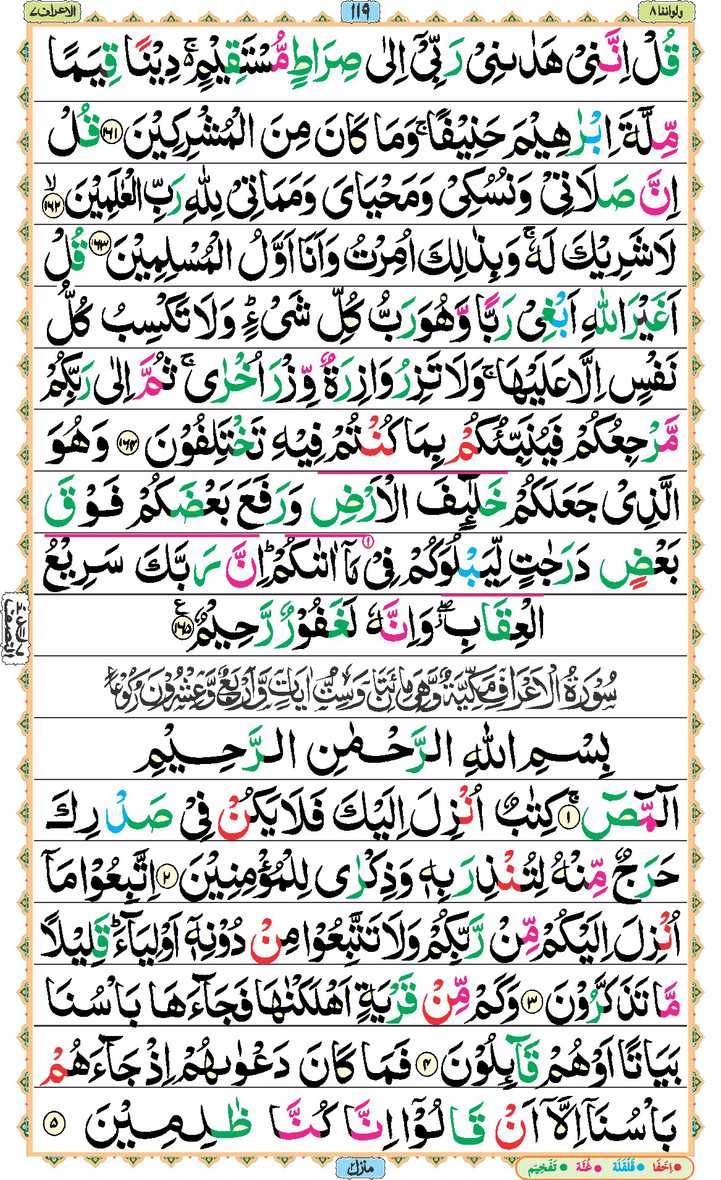 الاعراف ٧
١١٩
ولواننا ٨
قُلْ اِنَّنِيْ هَدٰىنِيْ رَبِّيْۤ اِلٰى صِرَاطٍ مُّسْتَقِيْمٍ ۚ دِيْنًا قِيَمًا
مِّلَّةَ اِبْرٰهِيْمَ حَنِيْفًا ۚ وَمَا كَانَ مِنَ الْمُشْرِكِيْنَ ۝١٦١ قُلْ
اِنَّ صَلَاتِيْ وَنُسُكِيْ وَمَحْيَايَ وَمَمَاتِيْ لِلّٰهِ رَبِّ الْعٰلَمِيْنَ ۙ۝١٦٢
لَا شَرِيْكَ لَهٗ ۚ وَبِذٰلِكَ اُمِرْتُ وَاَنَا اَوَّلُ الْمُسْلِمِيْنَ ۝١٦٣ قُلْ
اَغَيْرَ اللّٰهِ اَبْغِيْ رَبًّا وَّهُوَ رَبُّ كُلِّ شَيْءٍ ؕ وَلَا تَكْسِبُ كُلُّ
نَفْسٍ اِلَّا عَلَيْهَا ۚ وَلَا تَزِرُ وَازِرَةٌ وِّزْرَ اُخْرٰى ۚ ثُمَّ اِلٰى رَبِّكُمْ
مَّرْجِعُكُمْ فَيُنَبِّئُكُمْ بِمَا كُنْتُمْ فِيْهِ تَخْتَلِفُوْنَ ۝١٦٤ وَهُوَ
الَّذِيْ جَعَلَكُمْ خَلٰٓئِفَ الْاَرْضِ وَرَفَعَ بَعْضَكُمْ فَوْقَ
بَعْضٍ دَرَجٰتٍ لِّيَبْلُوَكُمْ فِيْ مَاۤ اٰتٰىكُمْ ؕ اِنَّ رَبَّكَ سَرِيْعُ
الْعِقَابِ ۖ وَاِنَّهٗ لَغَفُوْرٌ رَّحِيْمٌ ۝١٦٥ ع
سُوْرَةُ الْاَعْرَافِ مَكِّيَّةٌ وَّهِيَ مِائَتَانِ وَسِتُّ اٰيَاتٍ وَّاَرْبَعٌ وَّعِشْرُوْنَ رُكُوْعًا
بِسْمِ اللّٰهِ الرَّحْمٰنِ الرَّحِيْمِ
الٓمّٓصٓ ۚ۝١ كِتٰبٌ اُنْزِلَ اِلَيْكَ فَلَا يَكُنْ فِيْ صَدْرِكَ
حَرَجٌ مِّنْهُ لِتُنْذِرَ بِهٖ وَذِكْرٰى لِلْمُؤْمِنِيْنَ ۝٢ اِتَّبِعُوْا مَاۤ
اُنْزِلَ اِلَيْكُمْ مِّنْ رَّبِّكُمْ وَلَا تَتَّبِعُوْا مِنْ دُوْنِهٖۤ اَوْلِيَآءَ ؕ قَلِيْلًا
مَّا تَذَكَّرُوْنَ ۝٣ وَكَمْ مِّنْ قَرْيَةٍ اَهْلَكْنٰهَا فَجَآءَهَا بَاْسُنَا
بَيَاتًا اَوْ هُمْ قَآئِلُوْنَ ۝٤ فَمَا كَانَ دَعْوٰىهُمْ اِذْ جَآءَهُمْ
بَاْسُنَاۤ اِلَّاۤ اَنْ قَالُوْۤا اِنَّا كُنَّا ظٰلِمِيْنَ ۝٥
منزل ٢
اِخفا قَلقَلَة غُنَّة تَفْخِيْم